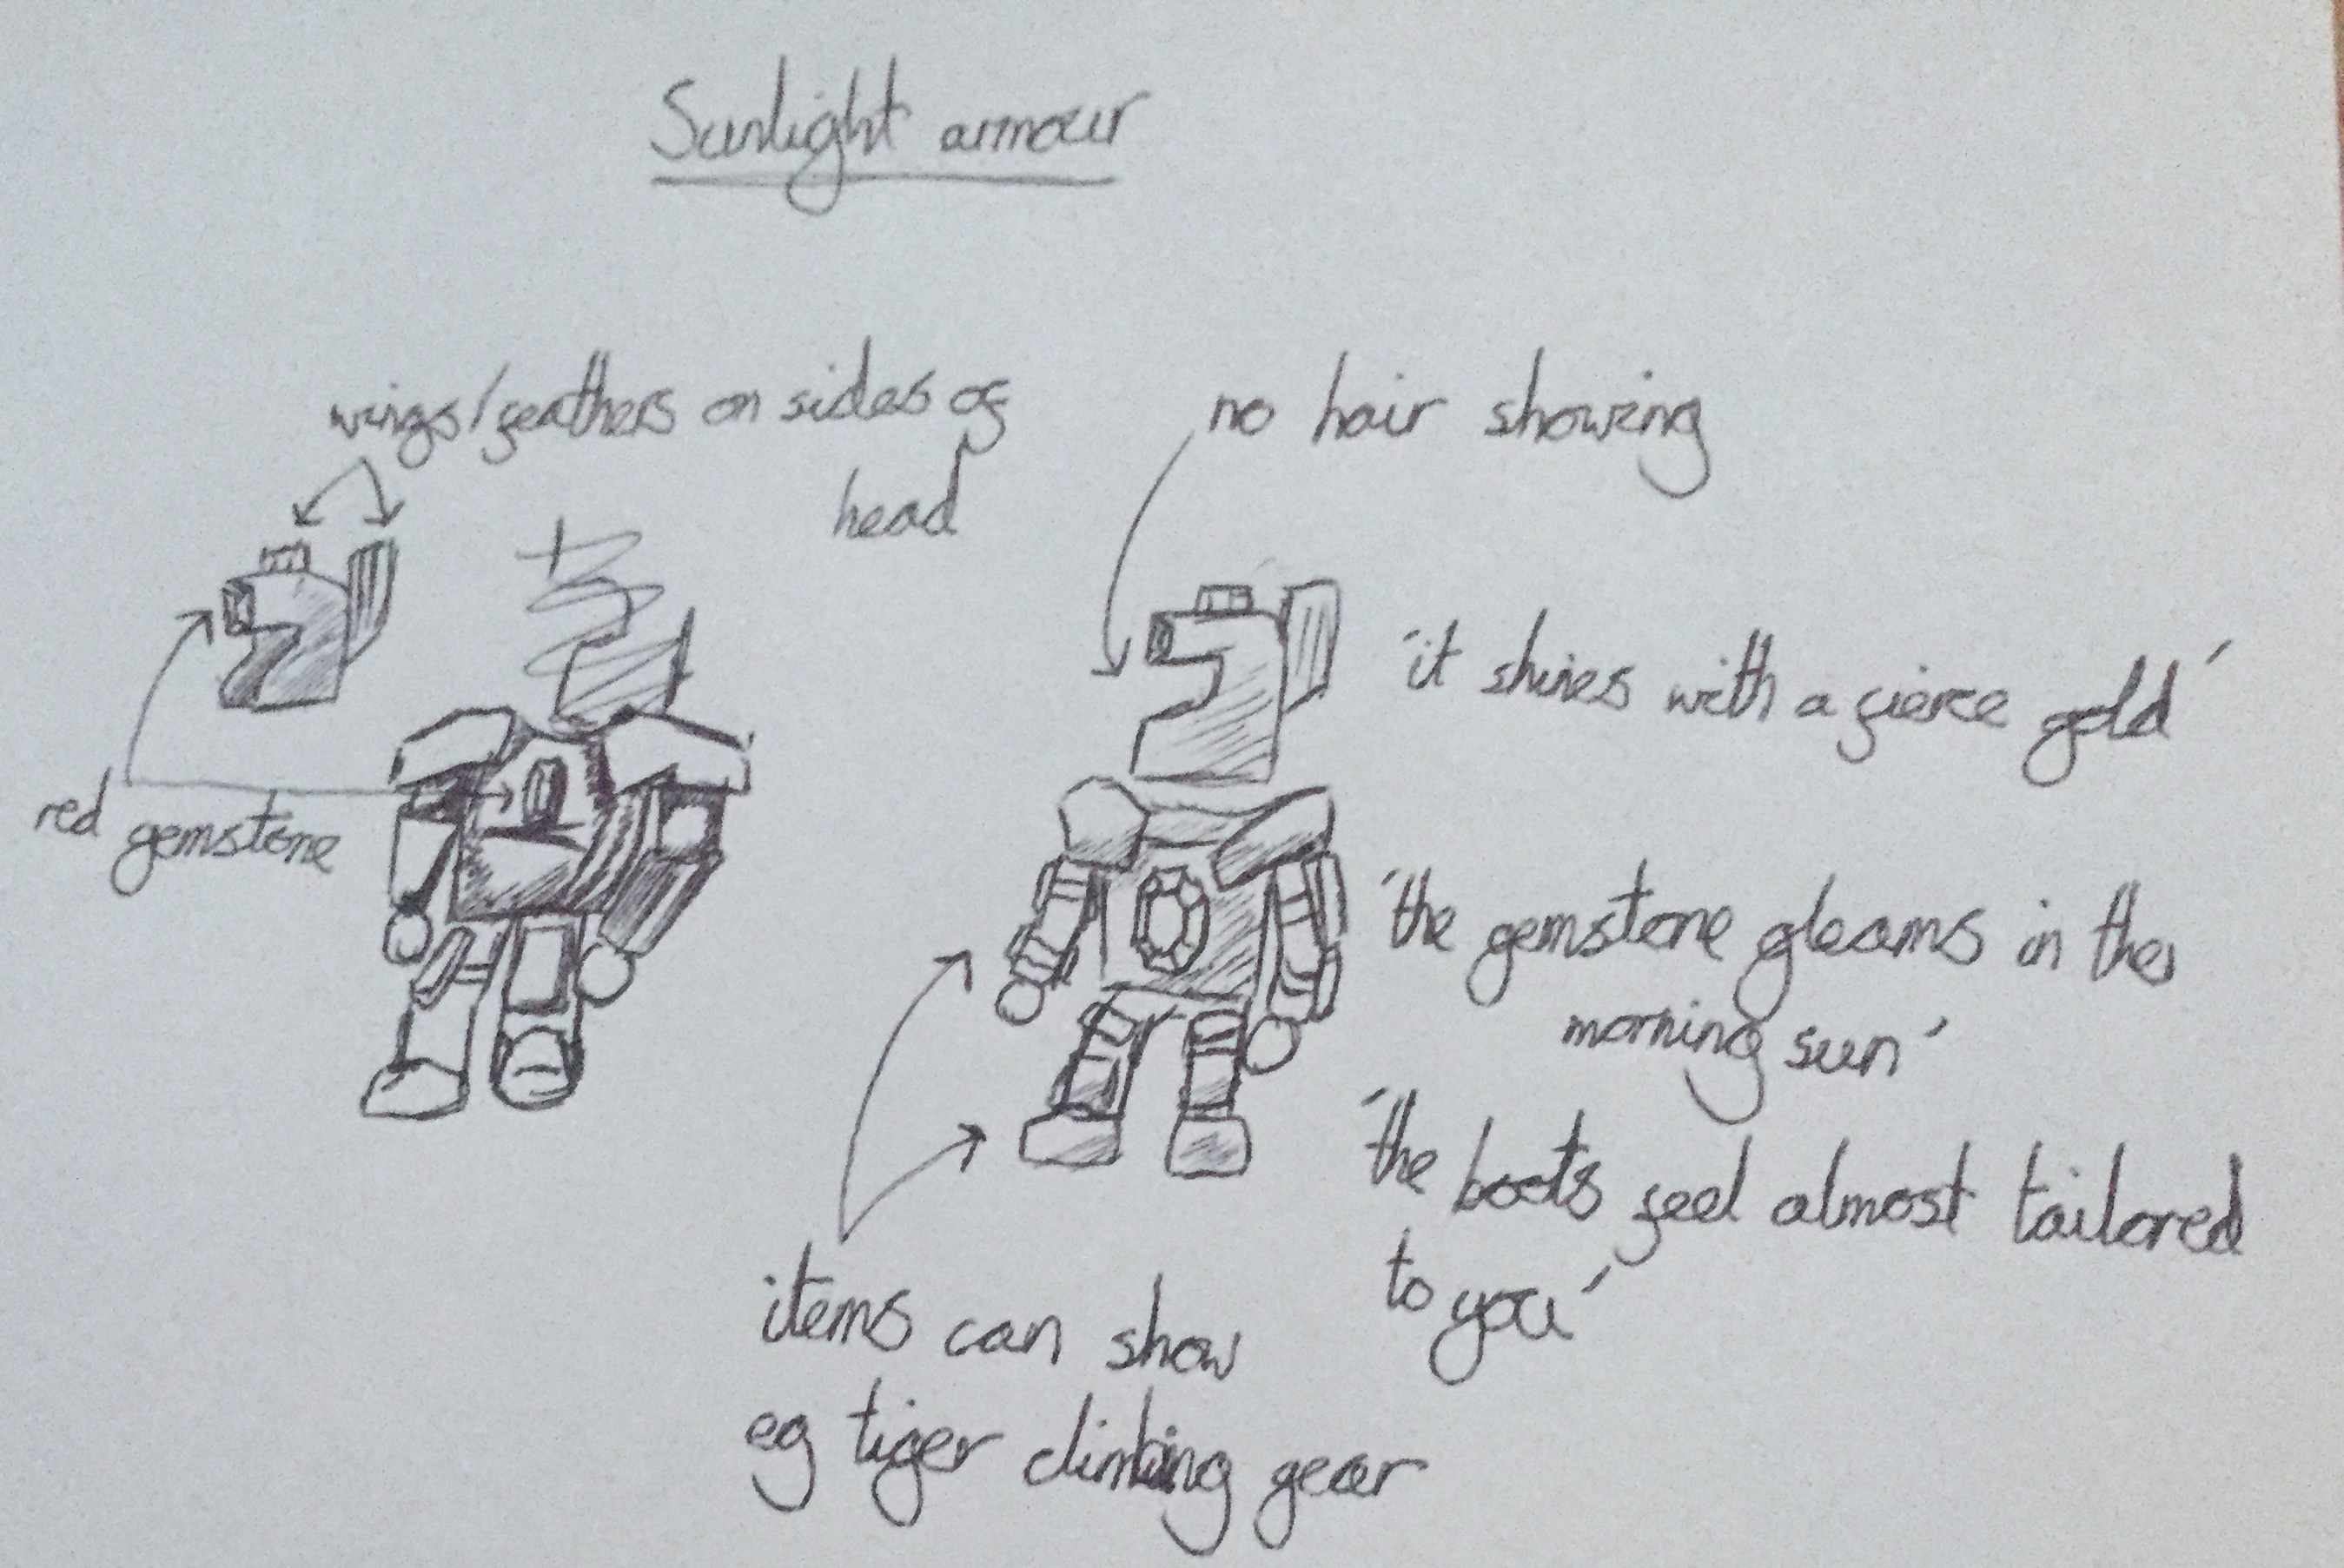 Sunlight armour
wings/feathers on sides of
head
no hair showing
red gemstone
'it shines with a fierce gold'
'the gemstone gleams in the
morning sun'
'the boots feel almost tailored
to you'
items can show
eg tiger climbing gear